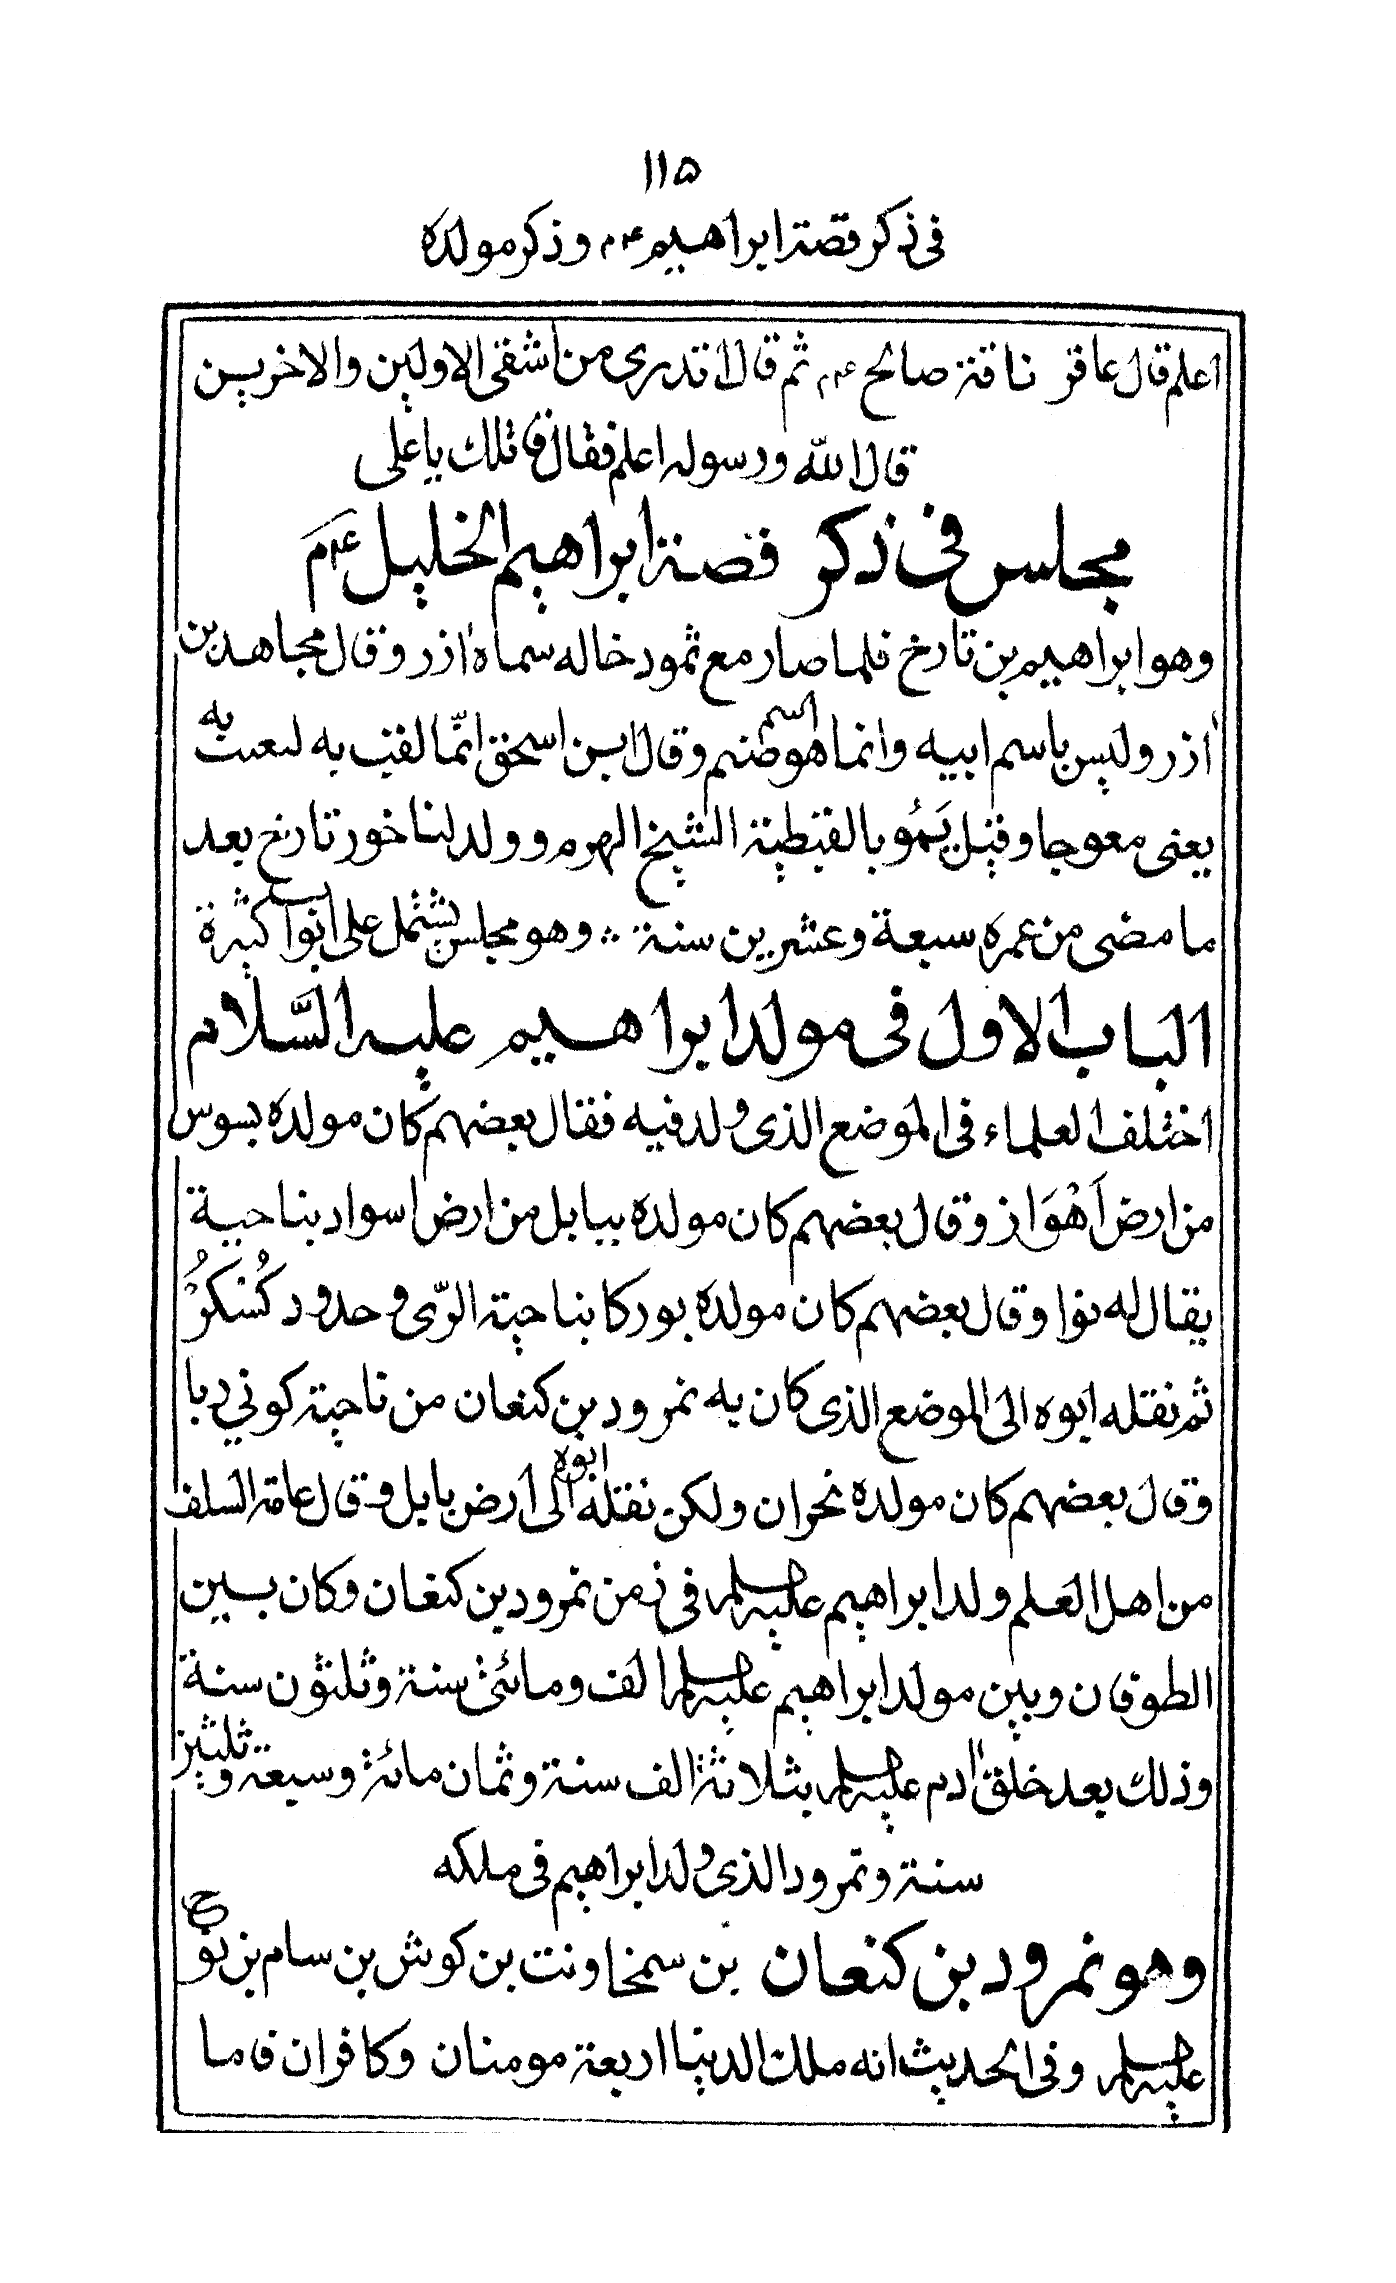 ١١٥
في ذكر قصة ابراهيم ع م وذكر مولده
اعلم قال عاقر ناقة صالح ع م ثم قال اتدري من اشقى الاولين والاخرين
قال الله ورسوله اعلم فقال قاتلك يا على
مجلس في ذكر قصة ابراهيم الخليل ع م
وهو ابراهيم بن تارخ فلما صار مع نمود خاله سماه آزر وقال مجاهد بن
آزر وليس باسم ابيه وانما هو اسم صنم وقال ابن اسحق انّما لقب به لعيب به
يعنى معوجا وقيل يَمُو بالقبطية الشيخ الهرم وولد لناخور تارخ بعد
ما مضى من عمره سبعة وعشرين سنة وهو مجلس يشتمل على ابواب كثيرة
الباب الاول فى مولد ابراهيم عليه السَّلام
اختلف العلماء فى الموضع الذى ولد فيه فقال بعضهم كان مولده بسوس
من ارض اَهْوَاز وقال بعضهم كان مولده ببابل من ارض اسواد بناحية
يقال له نوا وقال بعضهم كان مولده بوركا بناحية الرّى وحدود كُسْكُرْ
ثم نقله ابوه الى الموضع الذى كان به نمرود بن كنعان من ناحية كوني ربا
وقال بعضهم كان مولده نحران ولكن نقله ابوه الى ارض بابل وقال عامة السلف
من اهل العلم ولد ابراهيم عليه السلم فى زمن نمرود بن كنعان وكان بين
الطوفان وبين مولد ابراهيم عليه السلم الف ومائتى سنة وثلثون سنة
وذلك بعد خلق آدم عليه السلم بثلاثة الف سنة وثمان مائة وسبعة وثلثين
سنة ونمرود الذى ولد ابراهيم فى ملكه
وهو نمرود بن كنعان بن سمخاونت بن كوش بن سام بن نوح
عليه السلم وفى الحديث انه ملك الدنيا اربعة مومنان وكافران فاما